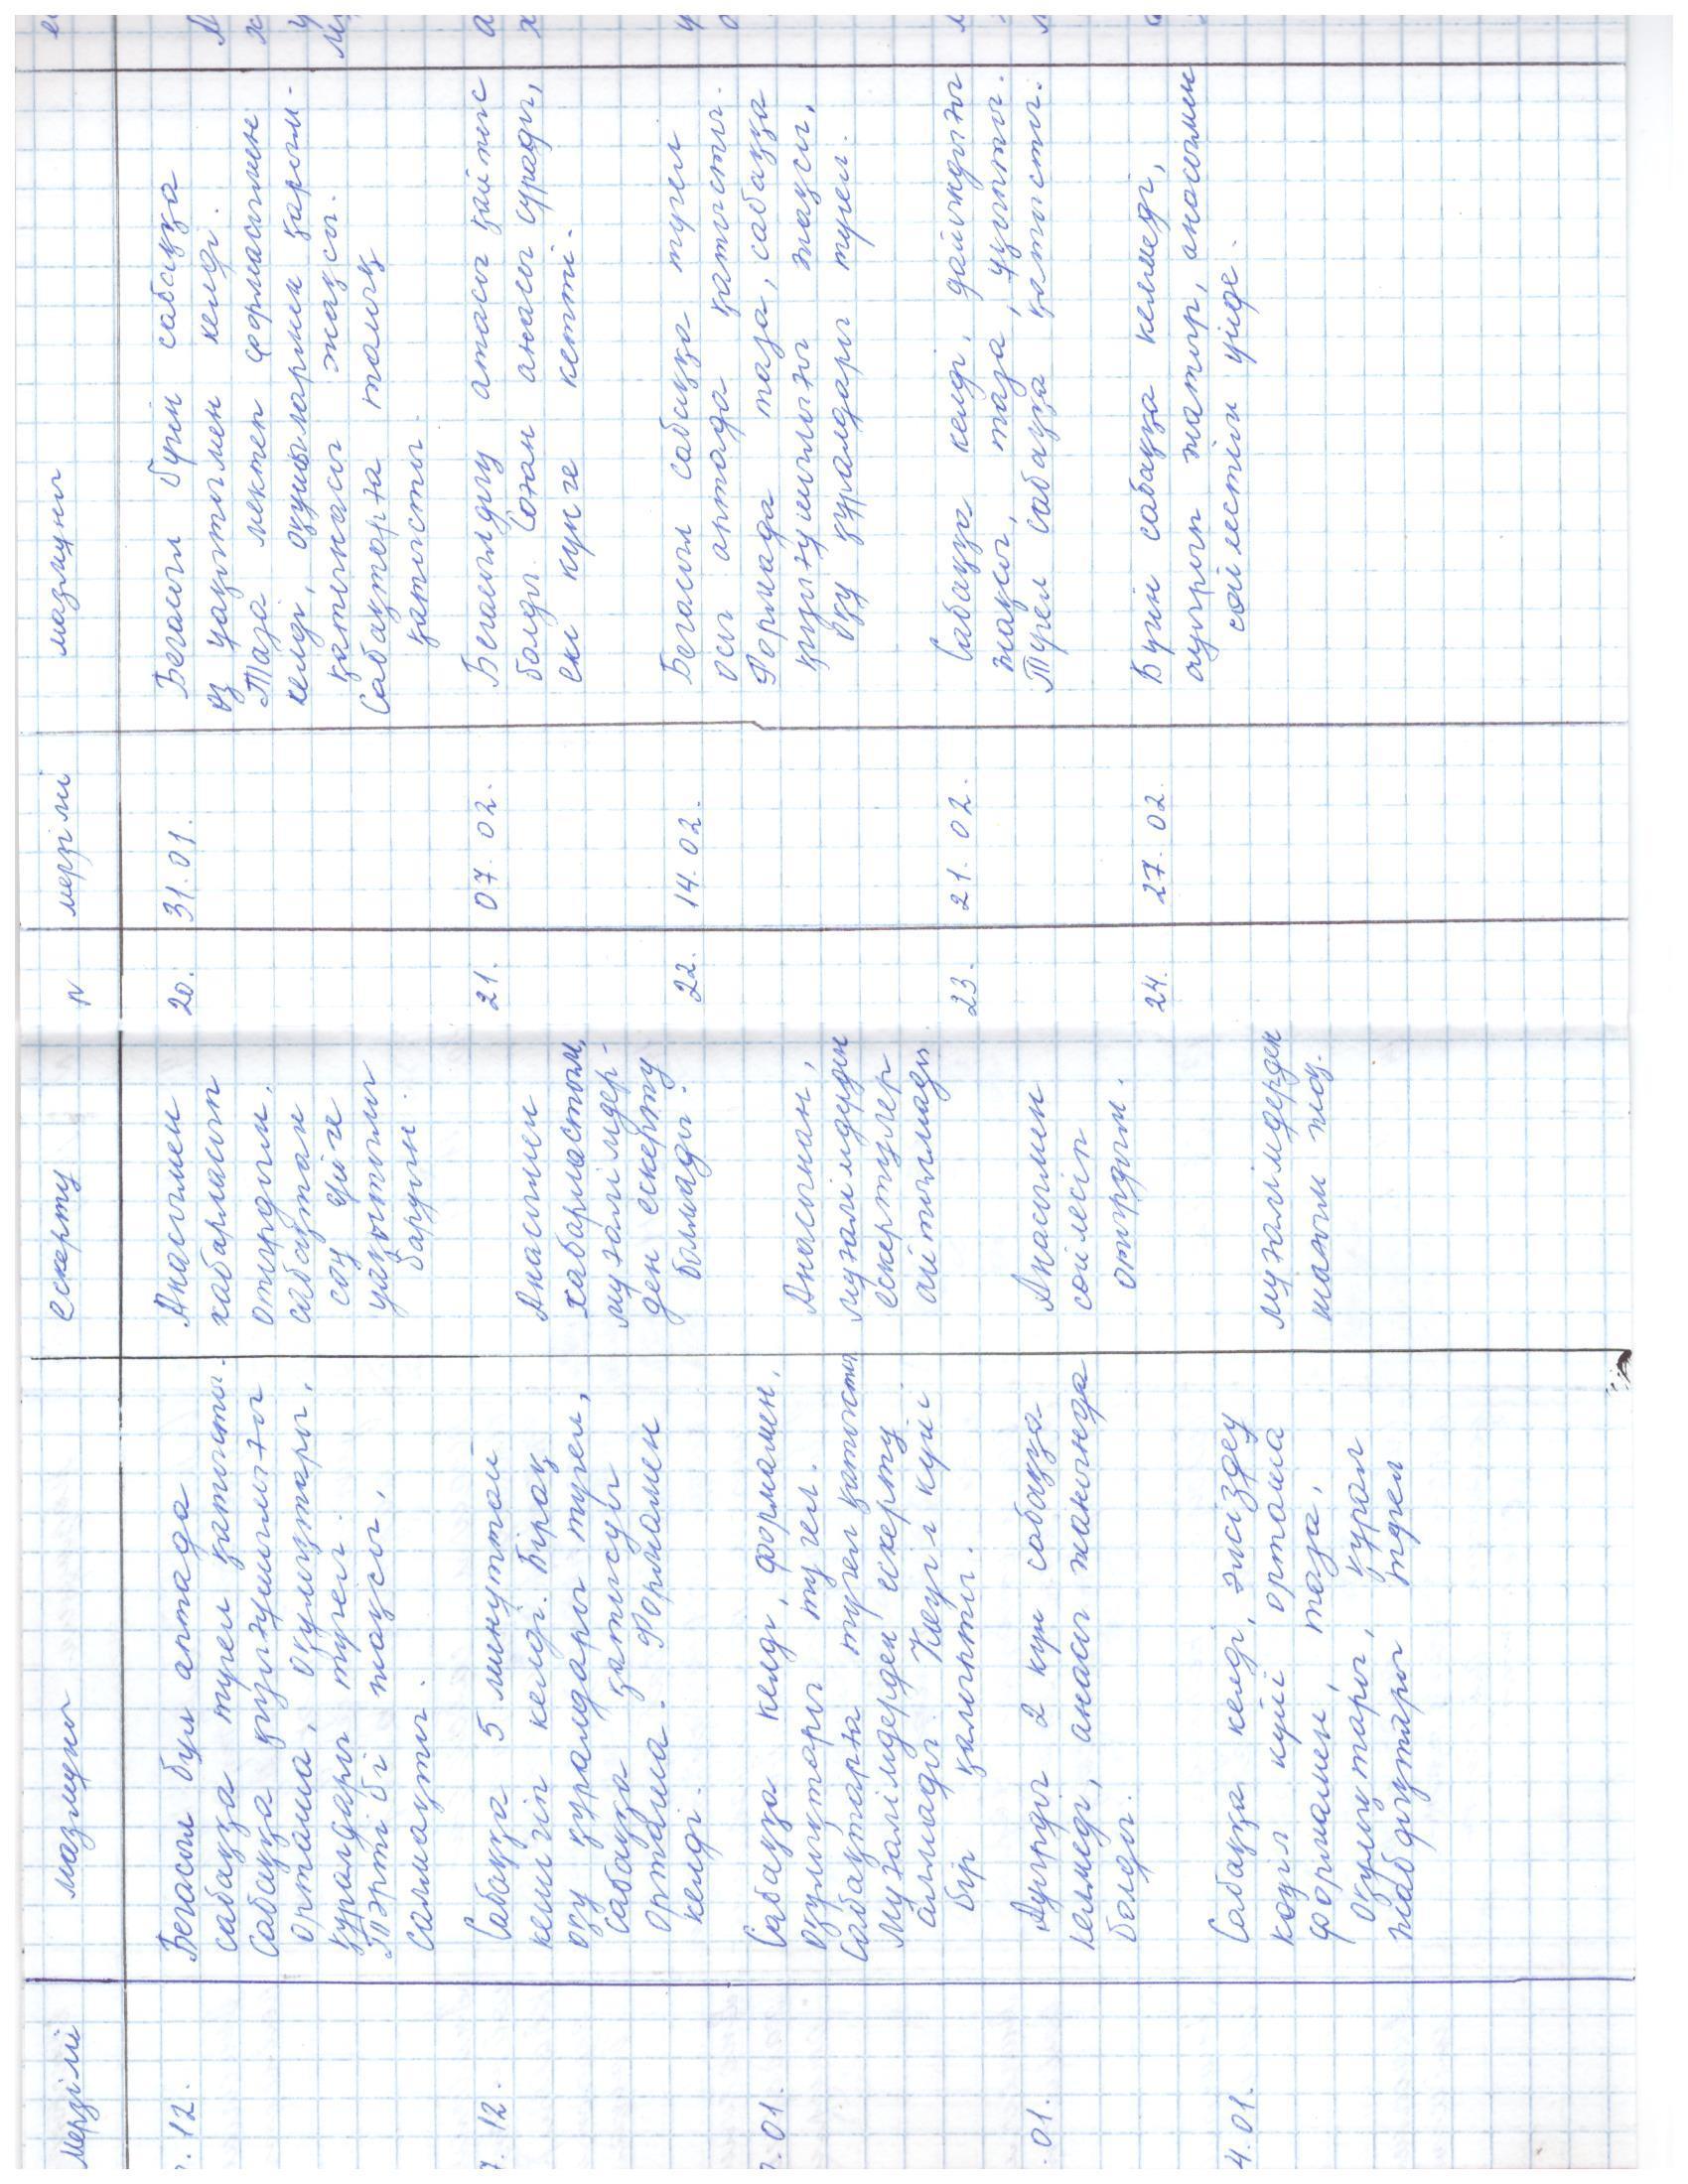 Мерзімі
мазмұны
ескерту
. 12.
Бегасыл бұл аптада
сабаққа түгел қатысты.
Сабаққа қызығушылығы
орташа, оқулықтары,
құралдары түгел.
Тәртібі жақсы,
салмақты.
Анасымен
хабарласып
отырдым.
сабақтан
соң үйге
уақытылы
бардың.
7. 12.
Сабаққа 5 минуттай
кешігіп келді. Бірақ
оқу құралдары түгел,
сабаққа қатысуы
орташа. Формамен
келді.
Анасымен
хабарластым,
мұғалімдер-
ден ескерту
болмады.
. 01.
Сабаққа келді, формамен,
оқулықтары түгел.
Сабақтарға түгел қатысты
Мұғалімдерден ескерту
алмады. Көңіл күйі
бір қалыпты.
Анасынан,
мұғалімдерден
ескертулер
айтылмады
. 01.
Ауырды 2 күн сабаққа
келмеді, анасы жанында
болды.
Анасымен
сөйлесіп
отырдым.
4. 01.
Сабаққа келді, әлсіздеу
көңіл күйі орташа
формамен, таза,
оқулықтары, құрал
жабдықтары түгел
мұғалімдерден
шағым жоқ.
N
мерзімі
мазмұны
20.
31. 01.
Бегасыл бүгін сабаққа
өз уақытымен келді.
Таза мектеп формасымен
келді, оқушылармен қарым-
қатынасы жақсы.
Сабақтарға толық
қатысты.
21.
07. 02.
Бегасылдың атасы қайтыс
болды. Соған анасы сұрады,
екі күнге кетті.
22.
14. 02.
Бегасыл сабаққа түгел
осы аптада қатысты.
Формада таза, сабаққа
қызығушылығы жақсы,
оқу құралдары түгел.
23.
21. 02.
Сабаққа келді, дайындығы
жақсы, таза, ұқыпты.
Түгел сабаққа қатысты.
24.
27. 02.
Бүгін сабаққа келмеді,
ауырып жатыр, анасымен
сөйлестім үйде.